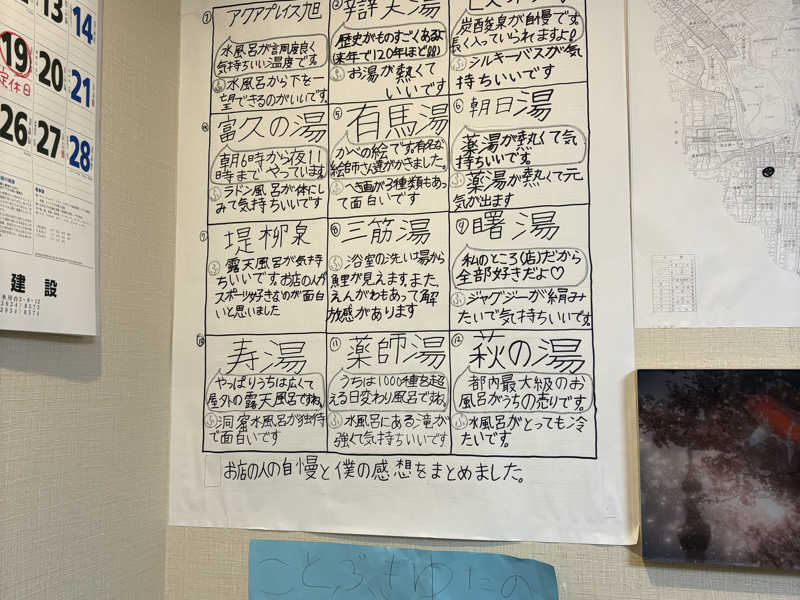 13
14
19
定休日
20
21
26
27
28
建設
① アクアプレイス旭
水風呂が言周度良く
気持ちいい温度です
ふ水風呂から下を一
望できるのがいいです。
② 弁天湯
歴史がものすごくあるよ
(来年で120年ほど!!)
ふお湯が熱くて
いいです
炭酸泉が自慢です。
長く入っていられますよ!
ふシルキーバスが気
持ちいいです
④ 富久の湯
朝6時から夜11
時までやっています
ふラドン風呂が体にし
みて気持ちいいです
⑤ 有馬湯
かべの絵です。有名な
絵師さん達がかきました。
ふへき画が3種類もあっ
て面白いです
⑥ 朝日湯
薬湯が熱くて気
持ちいいです。
ふ薬湯が熱くて元
気が出ます
⑦ 堤柳泉
ふ露天風呂が気持
ちいいです。お店の人が
スポーツ好きなのが面白
いと思いました
⑧ 三筋湯
ふ浴室の洗い場から
鯉が見えます。また、
えんがわもあって解
放感があります
⑨ 曙湯
私のところ(店)だから
全部好きだよ♡
ふジャグジーが絹み
たいで気持ちいいです。
⑩ 寿湯
やっぱりうちは広くて
屋外の露天風呂ですね。
ふ洞窟水風呂が独特
で面白いです
⑪ 薬師湯
うちは1000種を超
える日変わり風呂ですね。
ふ水風呂にある滝が
強くて気持ちいいです
⑫ 萩の湯
都内最大級のお
風呂がうちの売りです。
ふ水風呂がとっても冷
たいです。
お店の人の自慢と僕の感想をまとめました。
ことぶきゆたの